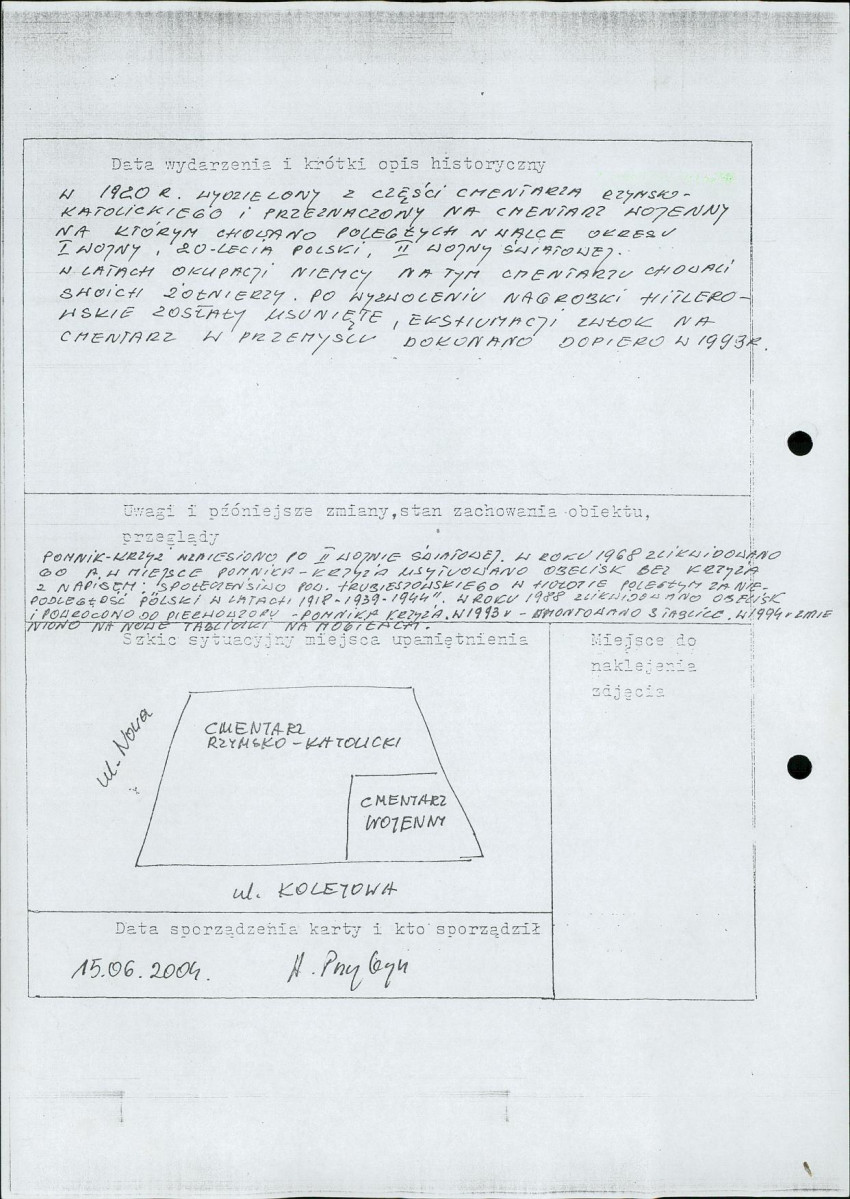 Data wydarzenia i krótki opis historyczny
W 1920 R. WYDZIELONY Z CZĘŚCI CMENTARZA RZYMSKO-
KATOLICKIEGO I PRZEZNACZONY NA CMENTARZ WOJENNY
NA KTÓRYM CHOWANO POLEGŁYCH W WALCE OKRESU
I WOJNY, 20-LECIA POLSKI, II WOJNY ŚWIATOWEJ.
W LATACH OKUPACJI NIEMCY NA TYM CMENTARZU CHOWALI
SWOICH ŻOŁNIERZY. PO WYZWOLENIU NAGROBKI HITLERO-
WSKIE ZOSTAŁY USUNIĘTE, EKSHUMACJI ZWŁOK NA
CMENTARZ W PRZEMYŚLU DOKONANO DOPIERO W 1993R.
Uwagi i późniejsze zmiany,stan zachowania obiektu,
przeglądy
POMNIK-KRZYŻ WZNIESIONO PO II WOJNIE ŚWIATOWEJ. W ROKU 1968 ZLIKWIDOWANO
GO A W MIEJSCE POMNIKA-KRZYŻA USYTUOWANO OBELISK BEZ KRZYŻA
Z NAPISEM: "SPOŁECZEŃSTWO POW. HRUBIESZOWSKIEGO W HOŁDZIE POLEGŁYM ZA NIE-
PODLEGŁOŚĆ POLSKI W LATACH 1918-1939-1944". W ROKU 1988 ZLIKWIDOWANO OBELISK
I POWRÓCONO DO PIERWOWZORU - POMNIKA KRZYŻA. W 1993 r - WMONTOWANO 3 TABLICE. W 1994 r ZMIE
NIONO NA NOWE TABLICZKI NA MOGIŁACH.
Szkic sytuacyjny miejsca upamiętnienia
Miejsce do
naklejenia
zdjęcia
ul. Nowa
CMENTARZ
RZYMSKO-KATOLICKI
CMENTARZ
WOJENNY
ul. KOLEJOWA
Data sporządzenia karty i kto sporządził
15.06.2004.
H.